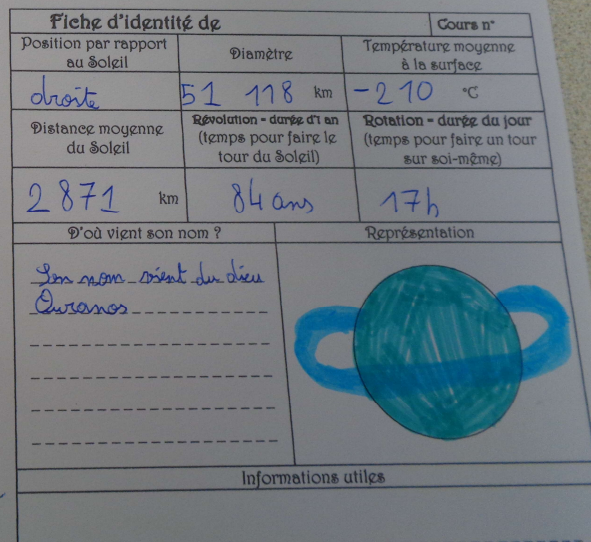 Fiche d'identité de
Cours n°
Position par rapport
au Soleil
Diamètre
Température moyenne
à la surface
droite
51 118 km
-210 °C
Distance moyenne
du Soleil
Révolution - durée d'1 an
(temps pour faire le
tour du Soleil)
Rotation - durée du jour
(temps pour faire un tour
sur soi-même)
2 871 km
84 ans
17h
D'où vient son nom ?
Représentation
Son nom vient du dieu
Ouranos
Informations utiles